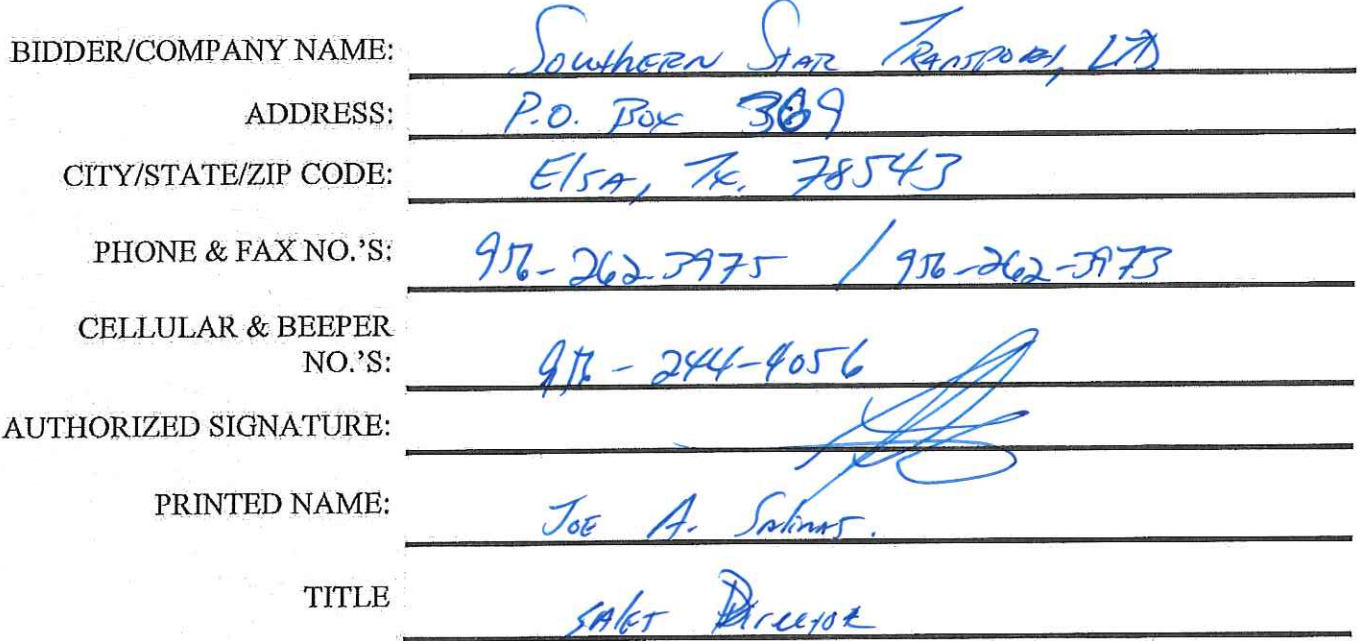 BIDDER/COMPANY NAME: Southern Star Transport, LTD
ADDRESS: P.O. Box 369
CITY/STATE/ZIP CODE: Elsa, Tx. 78543
PHONE & FAX NO.'S: 956-262-3975 / 956-262-3973
CELLULAR & BEEPER
NO.'S: 956-244-4056
AUTHORIZED SIGNATURE:
PRINTED NAME: Joe A. Salinas.
TITLE Sales Director